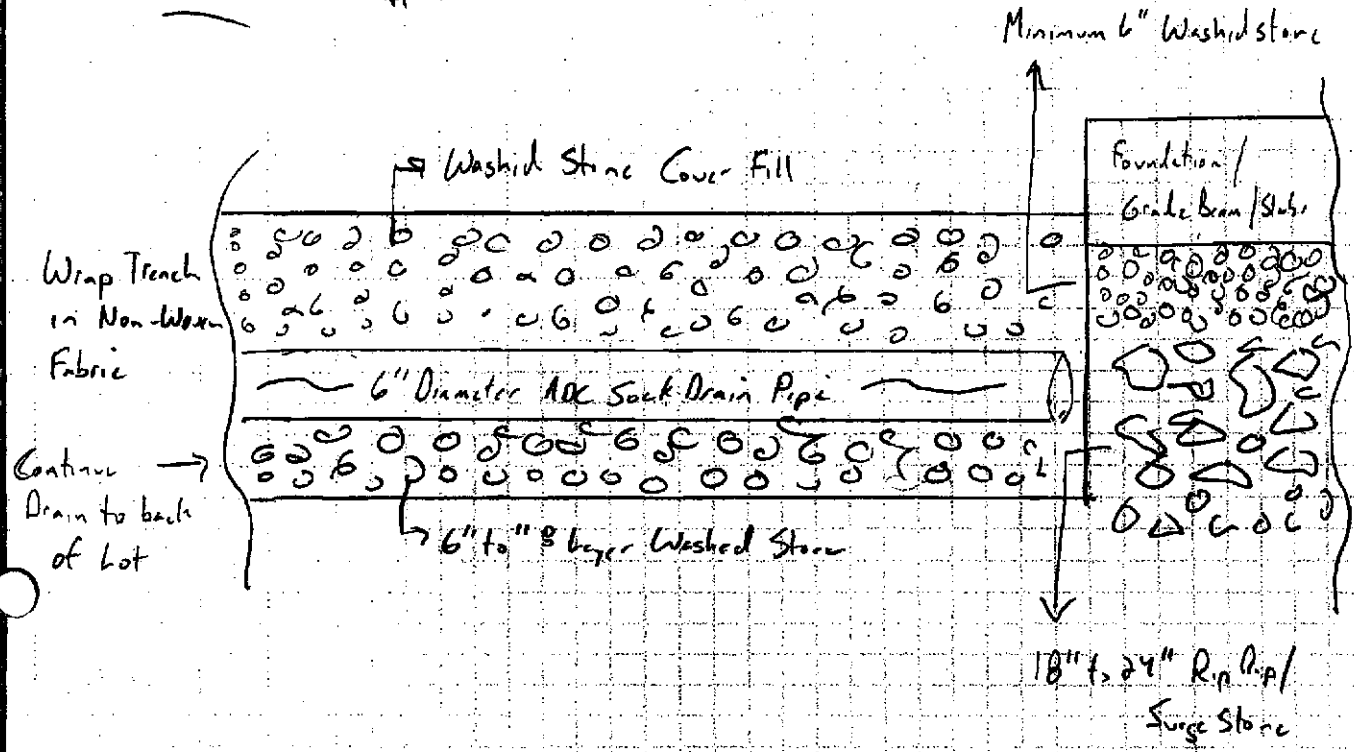 Minimum 6" Washed stone
Washed Stone Cover Fill
Foundation /
Grade Beam / Slab
Wrap Trench
in Non-Woven
Fabric
6" Diameter ADC Sock Drain Pipe
Continue
Drain to back
of Lot
6" to "8 Layer Washed Stone
18" to 24" Rip Rap /
Surge Stone